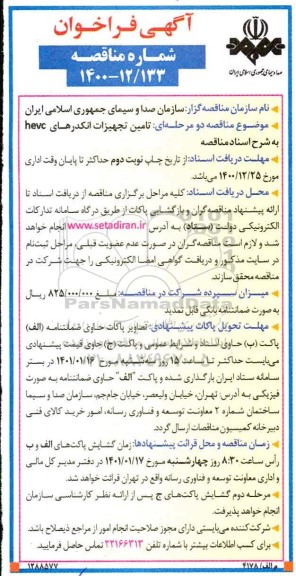 آگهی فراخوان
شماره مناقصه
۱۴۰۰-۱۲/۱۳۳
صدا و سیمای جمهوری اسلامی ایران
نام سازمان مناقصه‌گزار: سازمان صدا و سیمای جمهوری اسلامی ایران
موضوع مناقصه دو مرحله‌ای: تامین تجهیزات انکدرهای hevc
به شرح اسناد مناقصه
مهلت دریافت اسناد: از تاریخ چاپ نوبت دوم حداکثر تا پایان وقت اداری
مورخ ۱۴۰۰/۱۲/۲۵ می‌باشد.
محل دریافت اسناد: کلیه مراحل برگزاری مناقصه از دریافت اسناد تا
ارائه پیشنهاد مناقصه‌گران و بازگشایی پاکات از طریق درگاه سامانه تدارکات
الکترونیکی دولت (ستاد) به آدرس www.setadiran.ir انجام خواهد
شد و لازم است مناقصه‌گران در صورت عدم عضویت قبلی، مراحل ثبت‌نام
در سایت مذکور و دریافت گواهی امضا الکترونیکی را جهت شرکت در
مناقصه محقق سازند.
میزان سپرده شرکت در مناقصه: مبلغ ۸۲۵/۰۰۰/۰۰۰ ریال
به صورت ضمانتنامه بانکی قابل تمدید
مهلت تحویل پاکات پیشنهادی: تصاویر پاکات حاوی ضمانتنامه (الف)
پاکت (ب) حاوی اسناد و شرایط عمومی و پاکت (ج) حاوی قیمت پیشنهادی
می‌بایست حداکثر تا ساعت ۱۵ روز سه‌شنبه مورخ ۱۴۰۱/۰۱/۱۶ در بستر
سامانه ستاد ایران بارگذاری شده و پاکت "الف" حاوی ضمانتنامه به صورت
فیزیکی به آدرس: تهران، خیابان ولیعصر، خیابان جام‌جم، سازمان صدا و سیما
ساختمان شماره ۲ معاونت توسعه و فناوری رسانه، امور خرید کالای فنی
دبیرخانه کمیسیون مناقصات ارسال گردد.
زمان مناقصه و محل قرائت پیشنهادها: زمان گشایش پاکت‌های الف و ب
رأس ساعت ۸:۳۰ روز چهارشنبه مورخ ۱۴۰۱/۰۱/۱۷ در دفتر مدیر کل مالی
و اداری معاونت توسعه و فناوری رسانه واقع در تهران قرائت خواهد شد.
مرحله دوم گشایش پاکت‌های ج پس از ارائه نظر کارشناسی سازمان
انجام خواهد پذیرفت.
شرکت‌کننده می‌بایستی دارای مجوز صلاحیت انجام امور از مراجع ذیصلاح باشد.
برای کسب اطلاعات بیشتر با شماره تلفن ۲۲۱۶۶۳۱۳ تماس حاصل فرمایید.
م الف/ ۴۱۷۸
۱۲۸۸۵۷۷